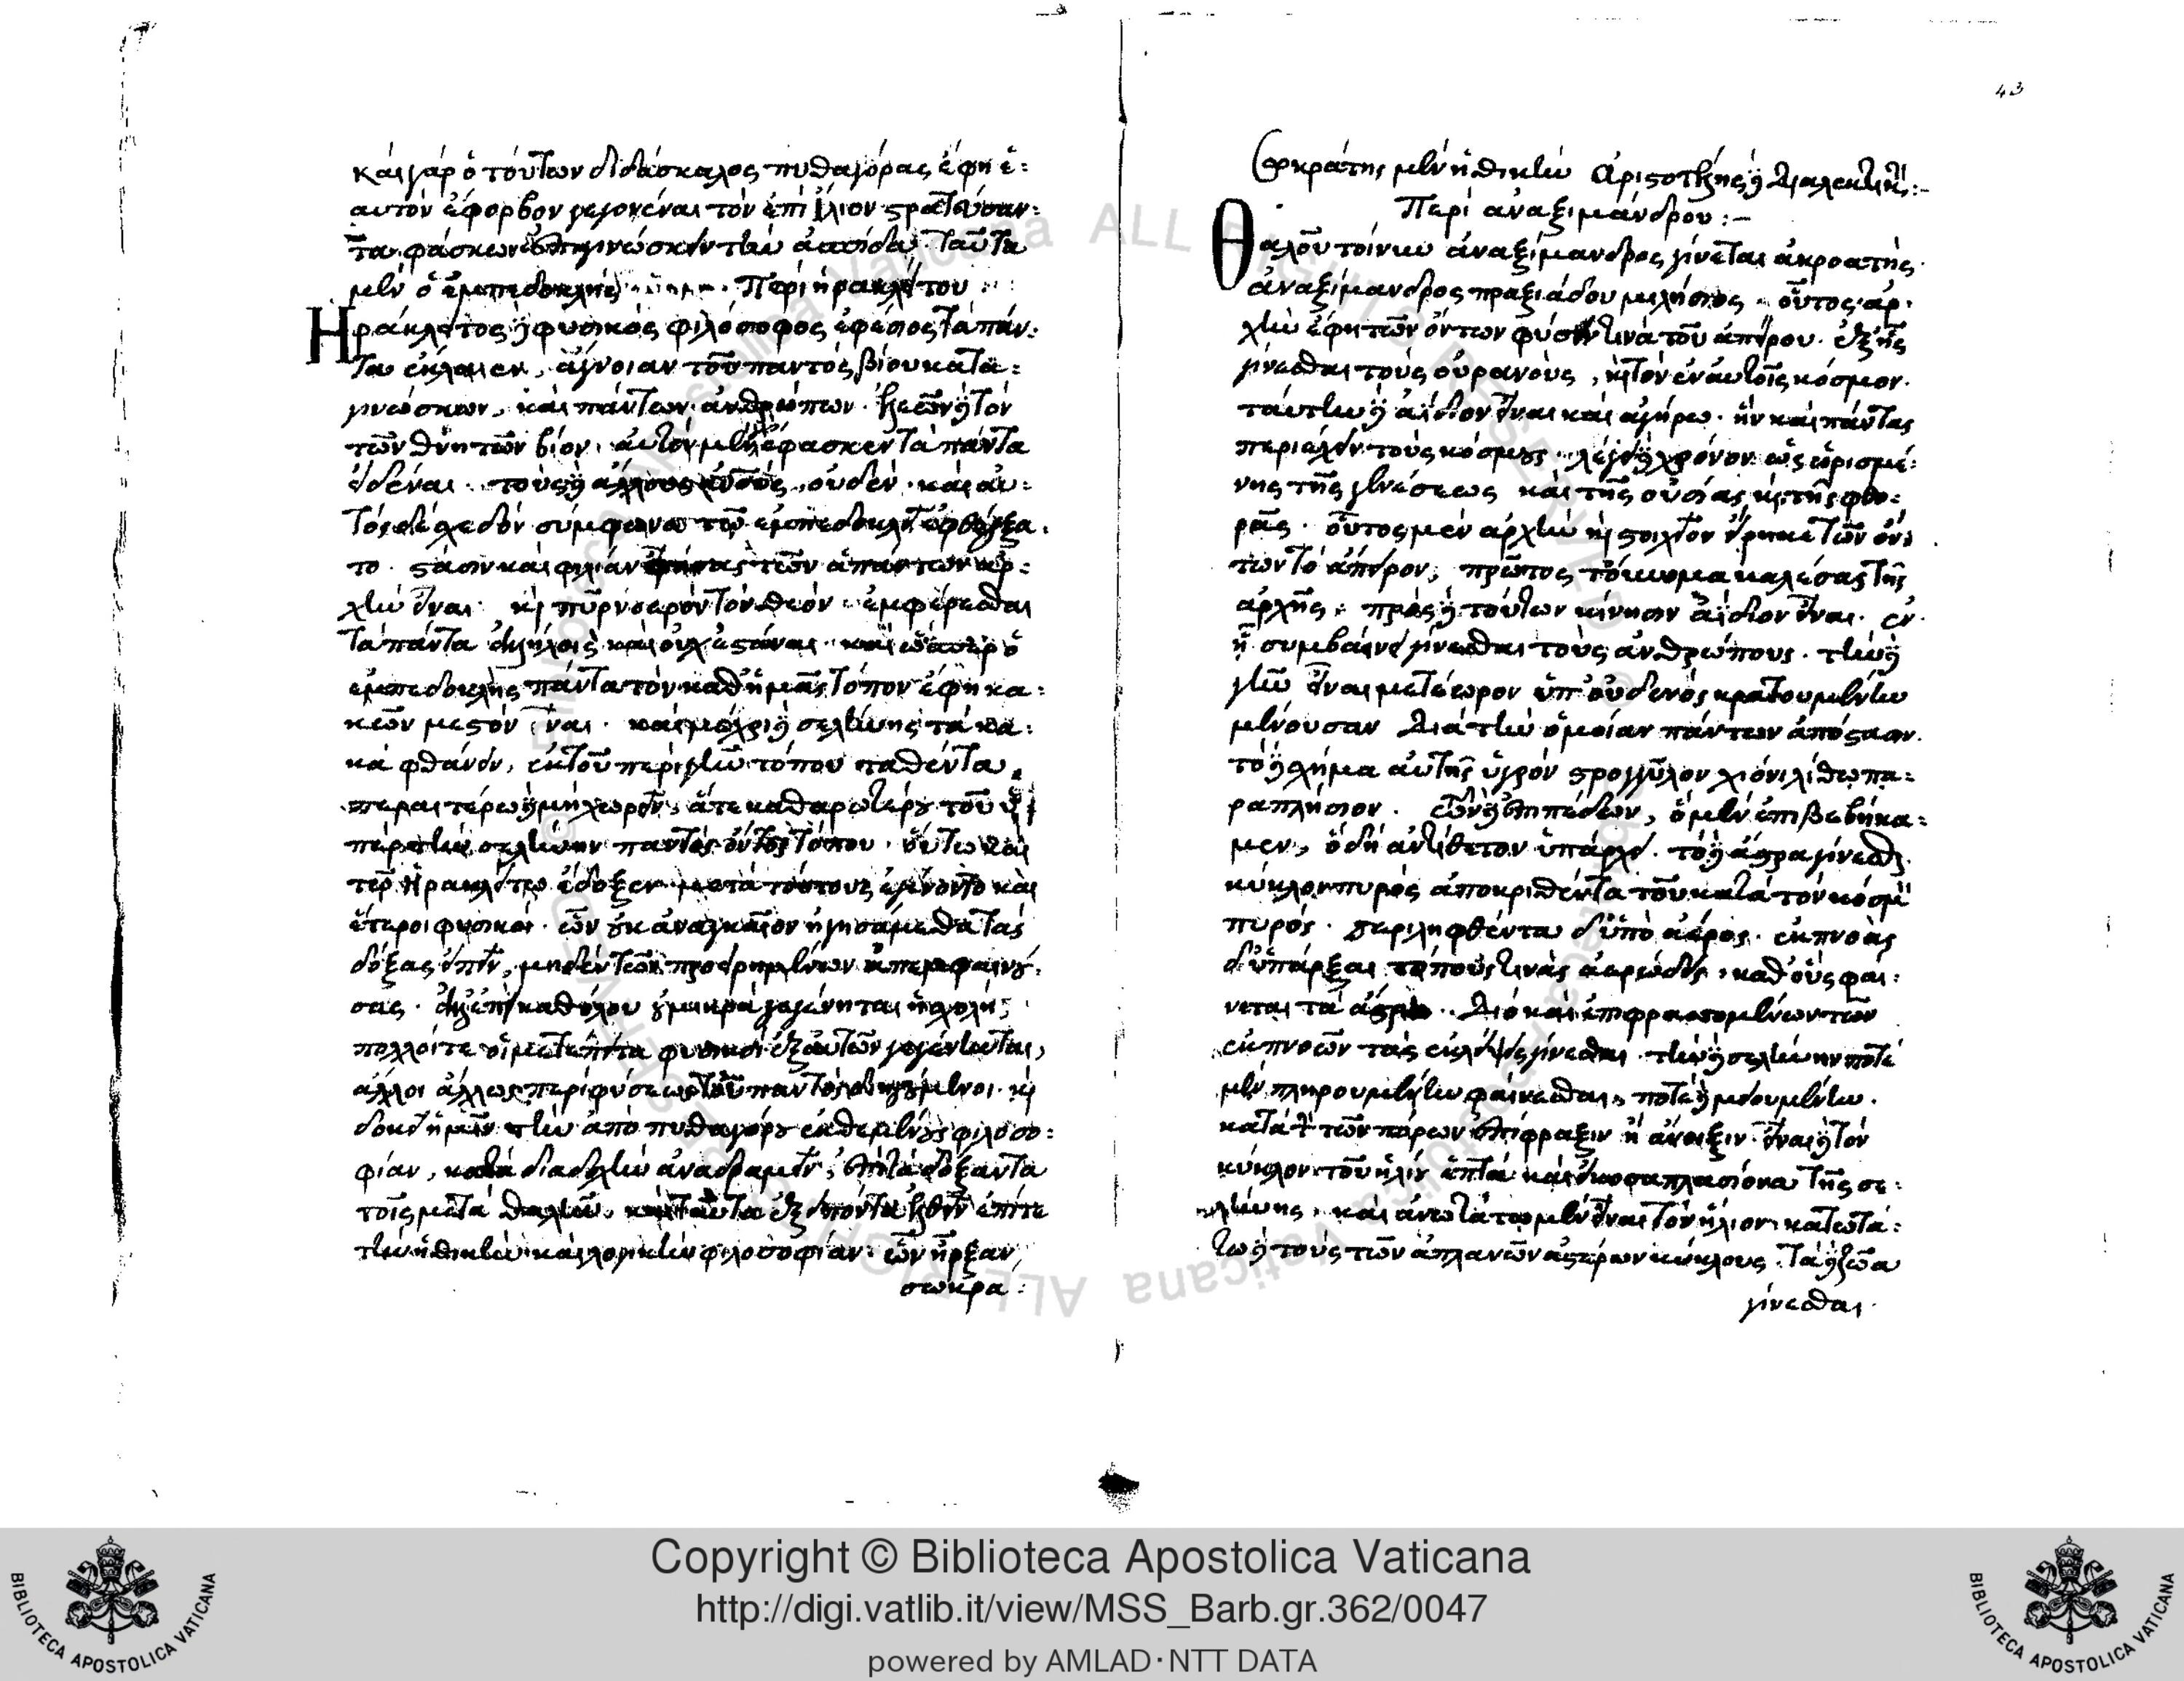 καὶ γὰρ ὁ τούτων διδάσκαλος πυθαγόρας ἔφη ἑ:
αυτὸν εὔφορβον γεγονέναι τὸν ἐπὶ ἴλιον στρατεύσαν:
τα φάσκων ἐπιγινώσκειν τὴν ἀσπίδα. ταῦτα
μὲν ὁ ἐμπεδοκλῆς Περὶ ἡρακλείτου
Ηράκλειτος δὲ φυσικὸς φιλόσοφος ἐφέσιος τὰ πάν:
τα ἔκλαιεν, ἄγνοιαν τοῦ παντὸς βίου κατα:
γινώσκων, καὶ πάντων ἀνθρώπων. ἐλεῶν δὲ τὸν
τῶν θνητῶν βίον. αὐτὸν μὲν ἔφασκεν τὰ πάντα
εἰδέναι. τοὺς δὲ ἄλλους ἀνθρώπους οὐδέν. καὶ αὐ:
τὸς δὲ σχεδὸν σύμφωνα τῷ ἐμπεδοκλεῖ ἐφθέγξα:
το. στάσιν καὶ φιλίαν φήσας τῶν ἁπάντων ἀρ:
χὴν εἶναι. καὶ πῦρ νοερὸν τὸν θεόν. συμφέρεσθαι
τὰ πάντα ἀλλήλοις καὶ οὐχ ἑστάναι. καὶ ὥσπερ ὁ
ἐμπεδοκλῆς πάντα τὸν καθ' ἡμᾶς τόπον ἔφη κα:
κῶν μεστὸν εἶναι. καὶ μέχρι δὲ σελήνης τὰ κα:
κὰ φθάνειν, ἐκ τοῦ περὶ γῆν τόπου ταθέντα,
περαιτέρω δὲ μὴ χωρεῖν, ἅτε καθαρωτέρου τοῦ ὑ
πὲρ τὴν σελήνην παντὸς ὄντος τόπου. οὕτω καὶ
τῷ Ἡρακλείτῳ ἔδοξεν. μετὰ τούτους ἐγένοντο καὶ
ἕτεροι φυσικοί. ὧν οὐκ ἀναγκαῖον ἡγησάμεθα τὰς
δόξας εἰπεῖν, μηδὲν τῶν προειρημένων ἀπεμφαινού:
σας. ἀλλ' ἐπεὶ καθόλου οὐ μικρὰ γεγένηται ἡ σχολή,
πολλοί τε οἱ μετέπειτα φυσικοὶ ἐξ αὐτῶν γεγένηνται,
ἄλλοι ἄλλως περὶ φύσεως τοῦ παντὸς διηγούμενοι. καὶ
δοκεῖ ἡμῖν τὴν ἀπὸ πυθαγόρου ἐκθεμένους φιλοσο:
φίαν, κατὰ διαδοχὴν ἀναδραμεῖν, ἐπὶ τὰ δόξαντα
τοῖς μετὰ θαλῆν, καὶ ταῦτα ἐξειπόντα ἐλθεῖν ἐπί τε
τὴν ἠθικὴν καὶ λογικὴν φιλοσοφίαν. ὧν ἦρξαν,
σωκρα:
43
Σωκράτης μὲν ἠθικὴν Ἀριστοτέλης δὲ διαλεκτικῆς:-
Περὶ ἀναξιμάνδρου:-
Θαλοῦ τοίνυν ἀναξίμανδρος γίνεται ἀκροατής.
ἀναξίμανδρος πραξιάδου μιλήσιος. οὗτος ἀρ:
χὴν ἔφη τῶν ὄντων φύσιν τινὰ τοῦ ἀπείρου. ἐξ ἧς
γίνεσθαι τοὺς οὐρανούς, καὶ τὸν ἐν αὐτοῖς κόσμον.
ταύτην δὲ ἀΐδιον εἶναι καὶ ἀγήρω. ἣν καὶ πάντας
περιέχειν τοὺς κόσμους. λέγει δὲ χρόνον ὡς ὡρισμέ:
νης τῆς γενέσεως καὶ τῆς οὐσίας καὶ τῆς φθο:
ρᾶς. οὗτος μὲν ἀρχὴν καὶ στοιχεῖον εἴρηκε τῶν ὄν:
των τὸ ἄπειρον, πρῶτος τοὔνομα καλέσας τῆς
ἀρχῆς. πρὸς δὲ τούτων κίνησιν ἀΐδιον εἶναι. ἐν
ᾗ συμβαίνει γίνεσθαι τοὺς ἀνθρώπους. τὴν δὲ
γῆν εἶναι μετέωρον ὑπ' οὐδενὸς κρατουμένην
μένουσαν διὰ τὴν ὁμοίαν πάντων ἀπόστασιν.
τὸ δὲ σχῆμα αὐτῆς ὑγρὸν στρογγύλον χιόνι λίθῳ πα:
ραπλήσιον. τῶν δὲ ἐπιπέδων, ὃ μὲν ἐπιβεβήκα:
μεν, ὃ δὴ ἀντίθετον ὑπάρχει. τὰ δὲ ἄστρα γίνεσθαι
κύκλον πυρὸς ἀποκριθέντα τοῦ κατὰ τὸν κόσμον
πυρός. περιληφθέντα δ' ὑπὸ ἀέρος. ἐκπνοὰς
δ' ὑπάρξαι τόπους τινὰς ἀερώδεις, καθ' οὓς φαί:
νεται τὰ ἄστρα. διὸ καὶ ἐπιφρασσομένων τῶν
ἐκπνοῶν τὰς ἐκλείψεις γίνεσθαι. τὴν δὲ σελήνην ποτὲ
μὲν πληρουμένην φαίνεσθαι, ποτὲ δὲ μειουμένην.
κατὰ τὴν τῶν πόρων ἐπίφραξιν ἢ ἄνοιξιν. εἶναι δὲ τὸν
κύκλον τοῦ ἡλίου ἑπτὰ καὶ εἰκοσαπλασίονα τῆς σε:
λήνης. καὶ ἀνωτάτω μὲν εἶναι τὸν ἥλιον. κατωτά:
τω δὲ τοὺς τῶν ἀπλανῶν ἀστέρων κύκλους. τὰ δὲ ζῶα
γίνεσθαι.
Copyright © Biblioteca Apostolica Vaticana
http://digi.vatlib.it/view/MSS_Barb.gr.362/0047
powered by AMLAD·NTT DATA
BIBLIOTECA APOSTOLICA VATICANA
BIBLIOTECA APOSTOLICA VATICANA